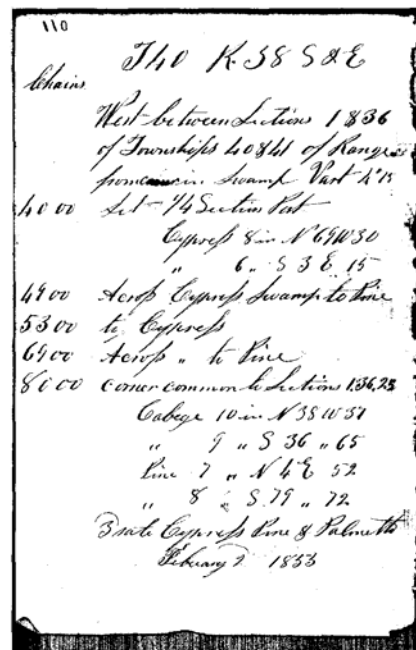 110
T40 R 38 S & E
Chains
West between Sections 1 & 36
of Townships 40 & 41 of Range
from in Swamp Vart 4° 15
40 00 Set 1/4 Section Post
Cypress 8 in N 69 W 30
" 6 " S 3 E 15
49 00 Across Cypress Swamp to Pine
53 00 to Cypress
69 00 Across " to Pine
80 00 corner common to Sections 1,36,
Cabege 10 in N 38 W 37
" 9 " S 36 " 65
Pine 7 " N 4 E 52
" 8 " S 79 " 72
3 rate Cypress Pine & Palmetto
Febuary 1853